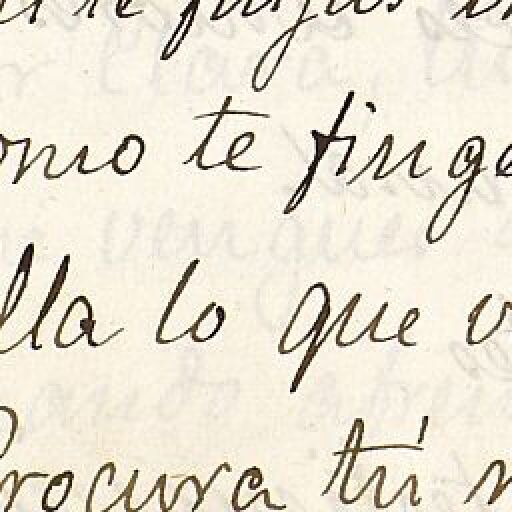 te finjas
omo te finge
lla lo que v
Procura tú